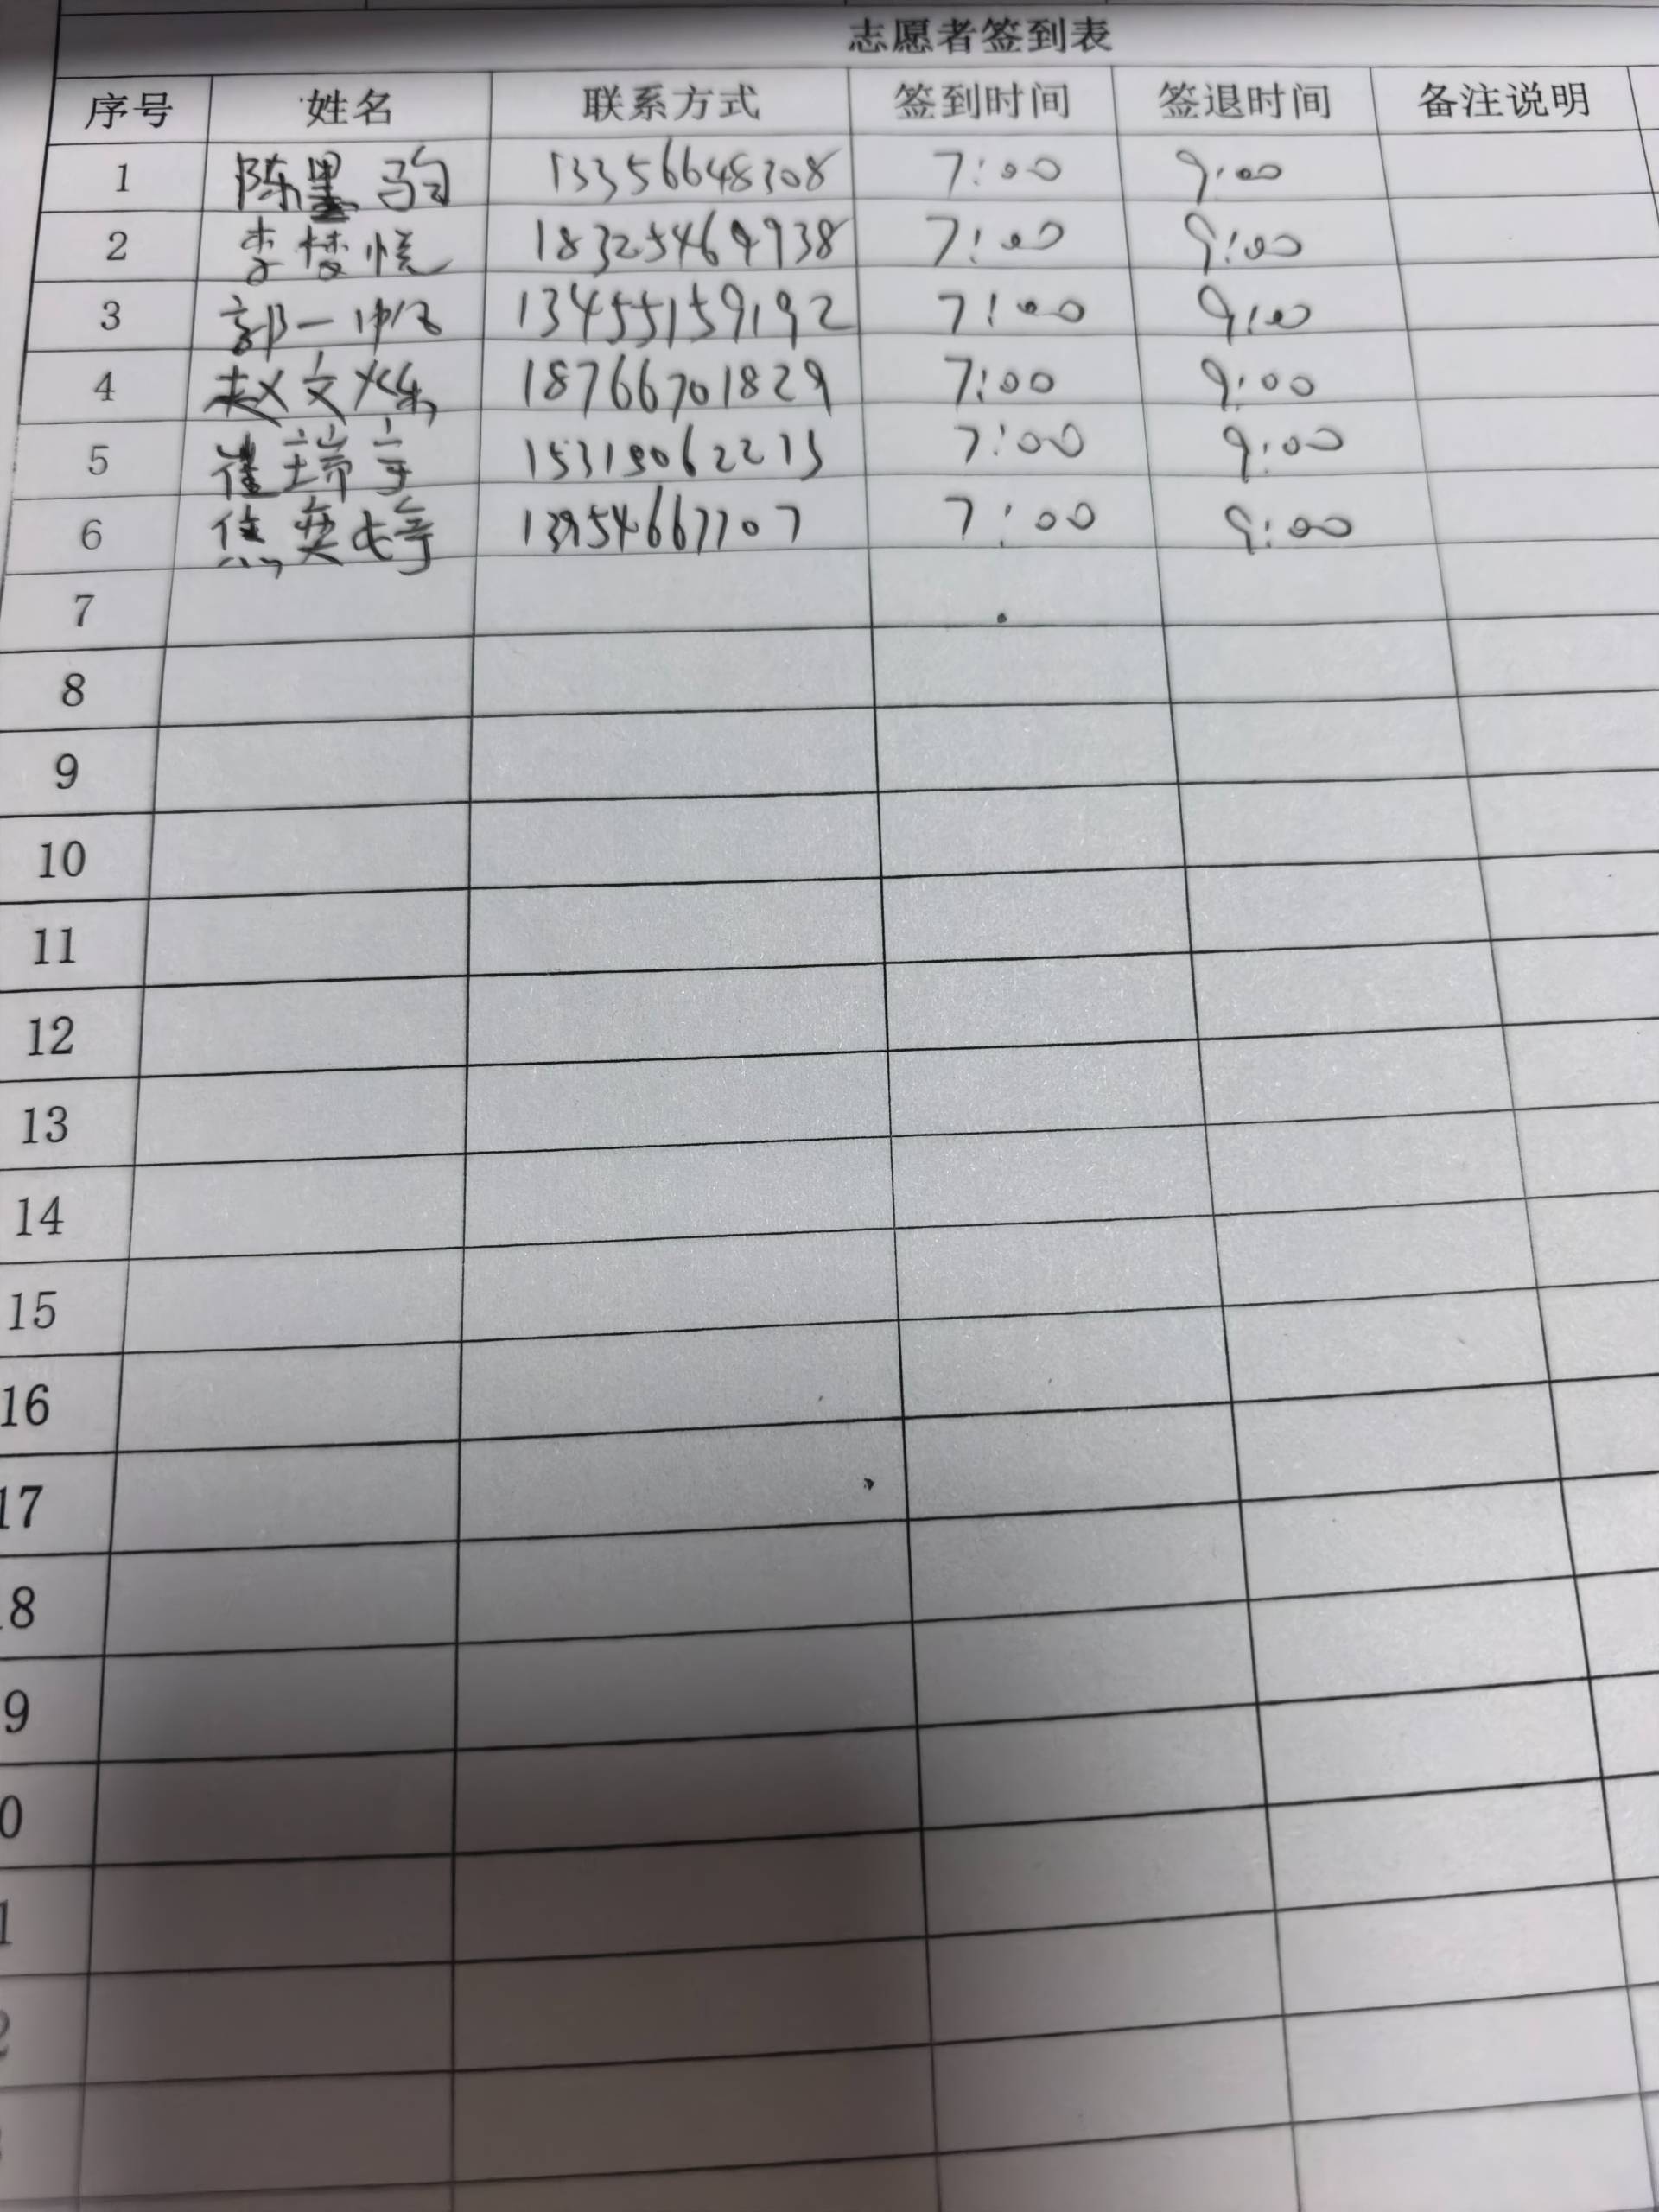 志愿者签到表
序号 姓名 联系方式 签到时间 签退时间 备注说明
1 陈墨驹 13356648308 7:00 9:00
2 李楼悦 18325469938 7:00 9:00
3 郭一帆 13455159192 7:00 9:00
4 赵文烁 18766701829 7:00 9:00
5 崔瑞宇 15319062215 7:00 9:00
6 焦奕婷 13954667707 7:00 9:00
7
8
9
10
11
12
13
14
15
16
17
8
9
0
1
2